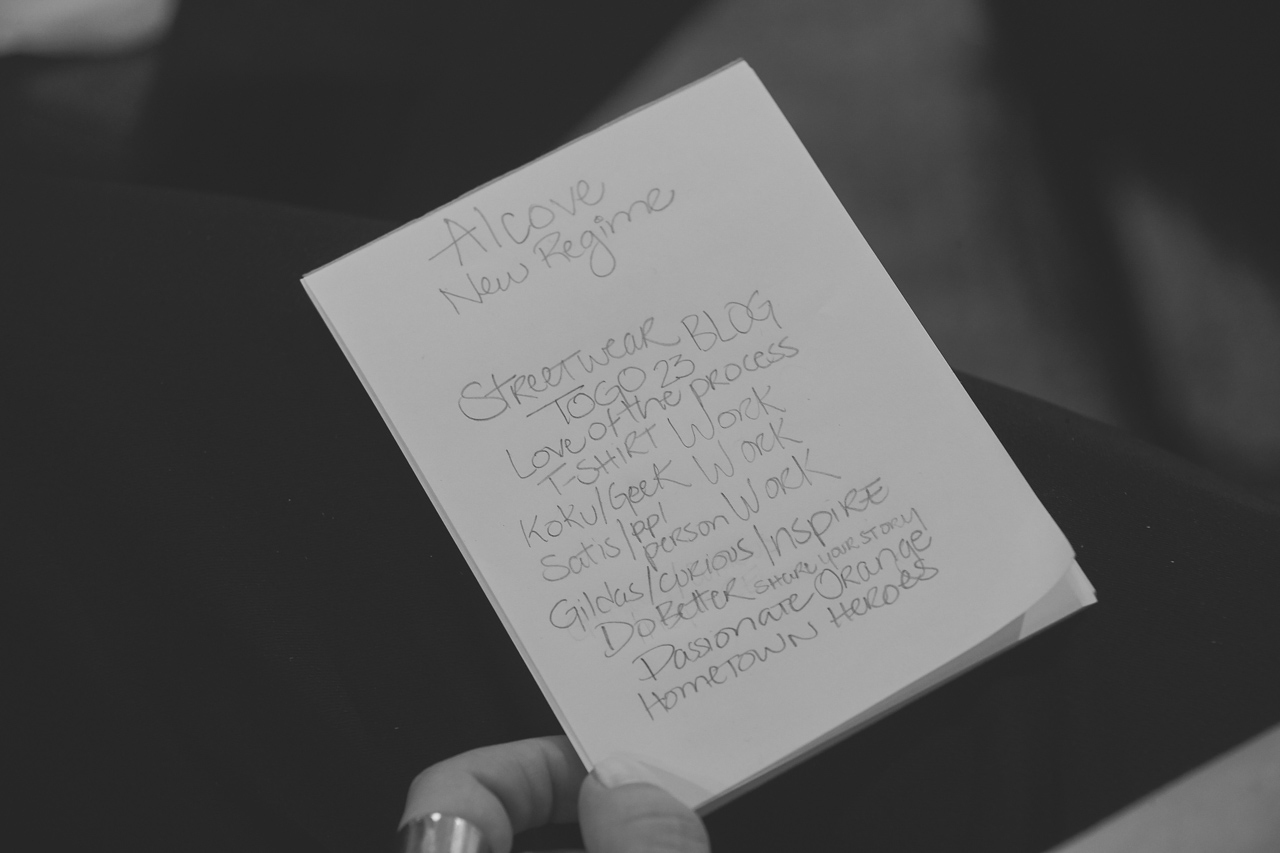 Alcove
New Regime
STREETWEAR BLOG
TOGO 23
Love of the process
T-SHIRT WORK
Koku/Geek Work
Satis/ppl
person WORK
Gildas/curious/INSPIRE
DO BETTER SHARE YOUR STORY
Passionate Orange
HOMETOWN HEROES